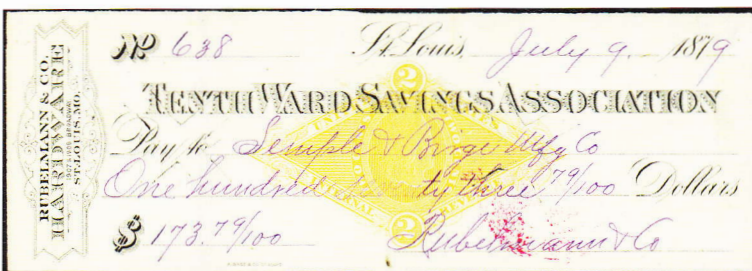 RUBELMANN & CO.
HARDWARE
ST. LOUIS, MO.
No 638 St. Louis, July 9 1879
TENTH WARD SAVINGS ASSOCIATION
Pay to Semple & Birge Mfg Co
One hundred seventy three 79/100 Dollars
$ 173.79/100 Rubelmann & Co
2
2